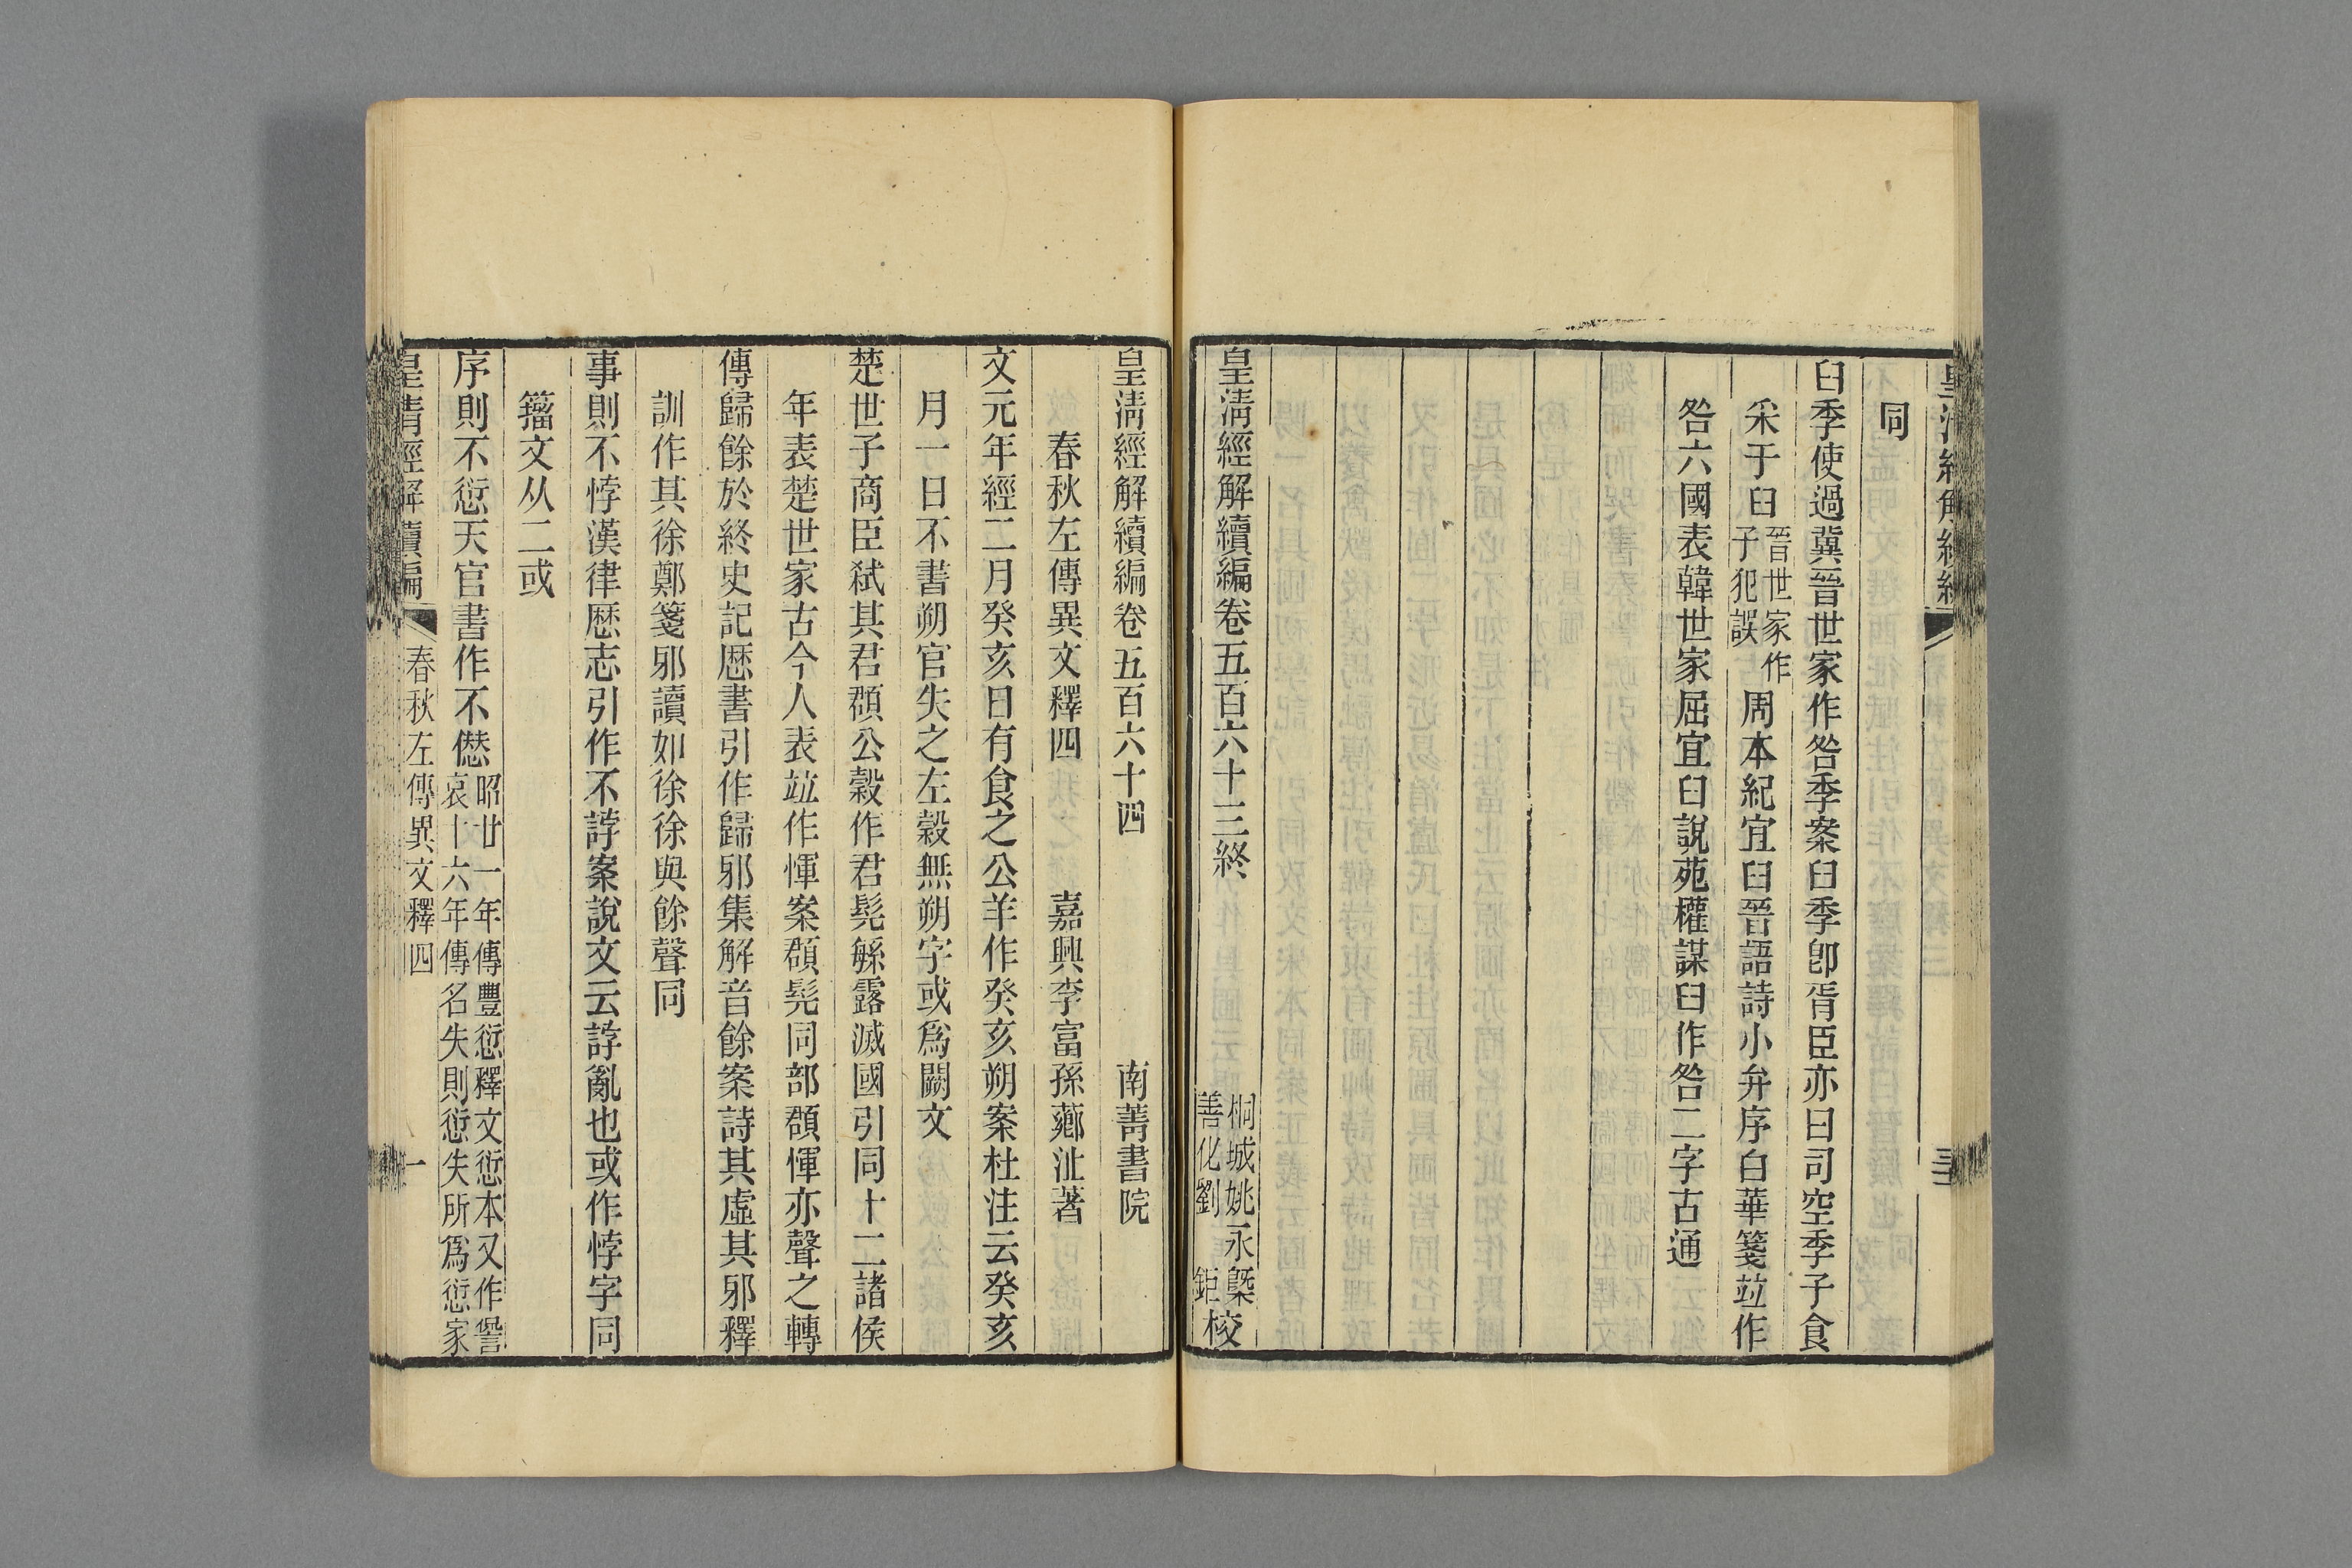 同
臼季使過冀晉世家作咎季案臼季卽胥臣亦曰司空季子食
采于臼晉世家作子犯誤周本紀宜臼晉語詩小弁序白華箋竝作
咎六國表韓世家屈宜臼說苑權謀臼作咎二字古通
皇淸經解續編卷五百六十三終
桐城姚永㮣
善化劉鉅校
皇淸經解續編卷五百六十四
南菁書院
春秋左傳異文釋四
嘉興李富孫薌沚著
文元年經二月癸亥日有食之公羊作癸亥朔案杜注云癸亥
月一日不書朔官失之左穀無朔字或爲闕文
楚世子商臣弑其君頵公穀作君髡緐露滅國引同十二諸侯
年表楚世家古今人表竝作惲案頵髡同部頵惲亦聲之轉
傳歸餘於終史記歷書引作歸邪集解音餘案詩其虛其邪釋
訓作其徐鄭箋邪讀如徐徐與餘聲同
事則不悖漢律厯志引作不誖案說文云誖亂也或作悖字同
籒文从二或
序則不愆天官書作不僁昭廿一年傳豐愆釋文愆本又作諐
哀十六年傳名失則愆失所爲愆家
皇淸經解續編
春秋左傳異文釋四
一